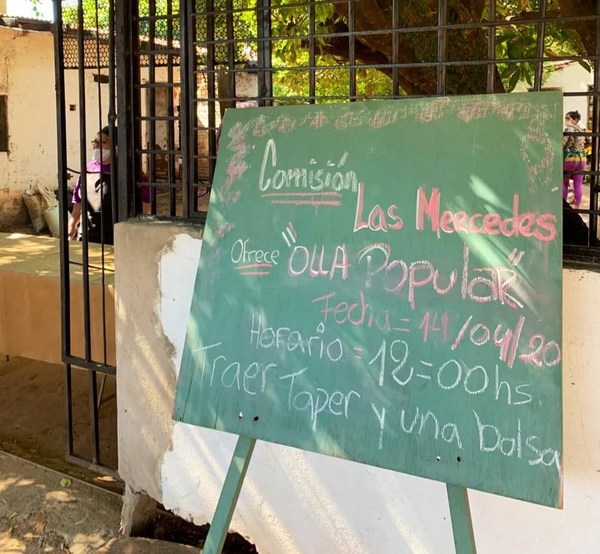 Comisión
Las Mercedes
Ofrece "OLLA Popular"
Fecha = 14/04/20
Horario = 12=00hs.
Traer Taper y una bolsa